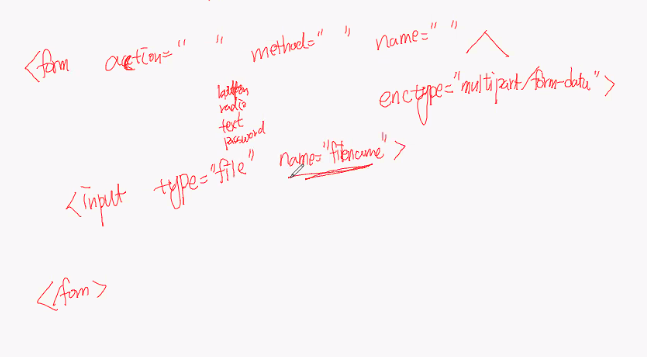 <form action=" " method=" " name=" "
enctype="multipart/form-data">
button
radio
text
password
<input type="file" name="filename">
</form>